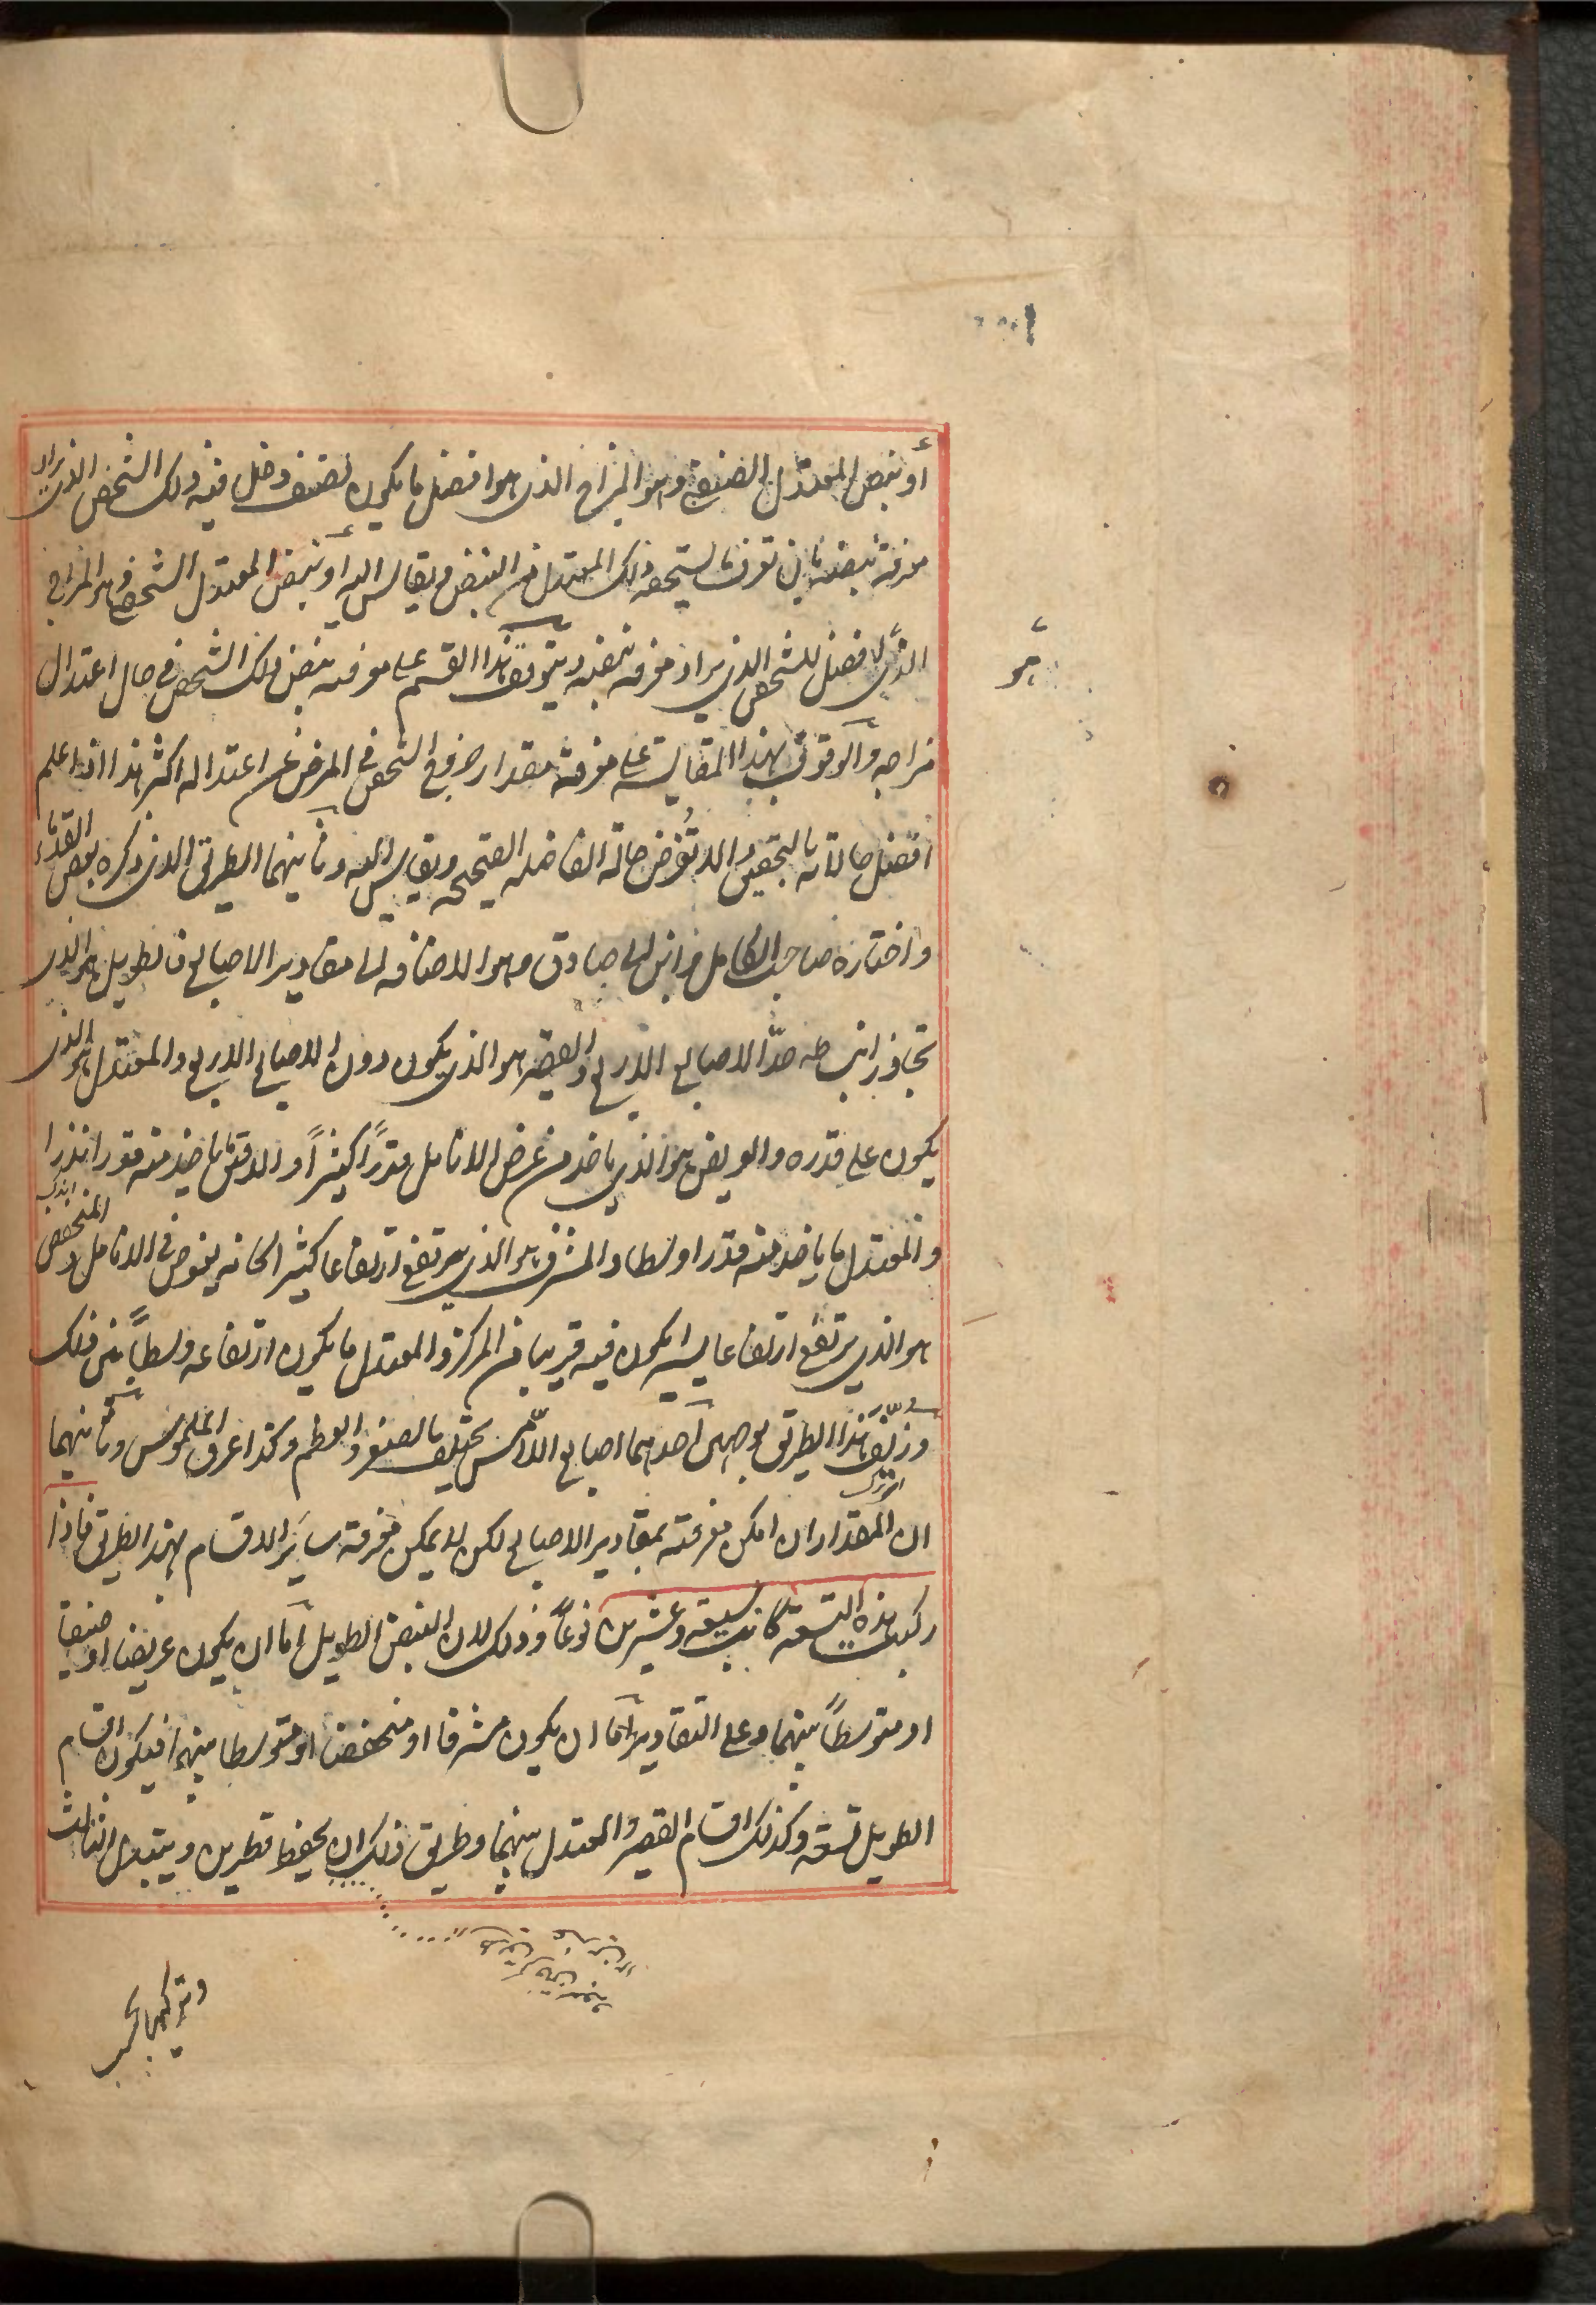 أو بنبض المعتدل الصنفي وهو المزاج الذي هو افضل ما يكون لصنف دخل فيه ذلك الشخص الذي يراد
معرفة نبضه بان تعرف ما يستحقه ذلك المعتدل من النبض ويقايس اليه أو بنبض المعتدل الشخصي وهو المزاج
الذي لافضل للشخص الذي يراد معرفه نبضه ويتوقف هذا القسم على معرفه نبض ذلك الشخص في حال اعتدال
مزاجه والوقوف بهذا المقايسة على معرفة مقدار خروج الشخص في المرض عن اعتداله اكثر هذا اذا علم
افضل حالاته بالتحقيق والا تفرض حالة الفاضله الصحيحه ويقايس اليه وثانيهما الطريق الذي ذكره بعض القدماء
واختاره صاحب الكامل وابن ابي صادق وهو الاضافه الى مقادير الاصابع فالطويل هو الذي
تجاوز انبساطه حدّ الاصابع الاربع والقصير هو الذي يكون دون الاصابع الاربع والمعتدل هو الذي
يكون على قدره والعريض هو الذي ياخذ من عرض الانامل قدراً كثيراً والدقيق ما ياخذ منه قدرا نذرا
والمعتدل ما ياخذ منه قدرا وسطا والمشرف هو الذي يرتفع ارتفاعا كثيرا كانه يغوص في الانامل والمنخفض
هو الذي يرتفع ارتفاعا يسيرا يكون فيه قريبا من المركز والمعتدل ما يكون ارتفاعه وسطاً بين ذلك
وزيّف هذا الطريق بوجهين احدهما اصابع اللامس يختلف بالصغر والعظم وكذا عرق الملموس وثانيهما
ان المقدار ان امكن معرفته بمقادير الاصابع لكن لا يمكن معرفة سائر الاقسام بهذا الطريق فاذا
ركبت هذه التسعة كانت سبعة وعشرين نوعاً وذلك لان النبض الطويل اما ان يكون عريضا او ضيقا
او متوسطاً بينهما وعلى التقادير اما ان يكون مشرفا او منخفضا او متوسطا بينهما فيكون اقسام
الطويل تسعة وكذلك اقسام القصير والمعتدل بينهما وطريق ذلك ان يحفظ قطرين ويتبدل الثالث
وتركيبها بحسب